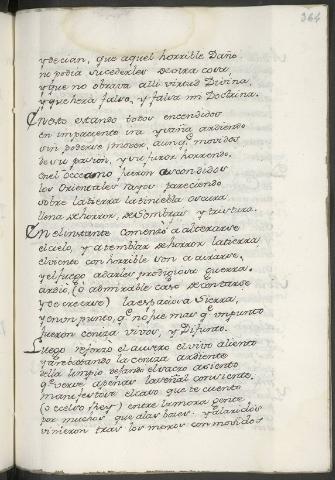 364
ydecian, que aquel horrible Daño
no podia sucederles de otra cosa,
y que no obrava alli virtud Divina
y que hera falsa, y falsa mi Doctrina.
En esto estando todos encendidos
en impaciente ira y saña ardiendo
sin poderse mover, aunq̃ movidos
de su pasion, y su furor horrendo.
en el occeano fueron ascondidos
los Orientales rayos pareciendo
sobre la tierra la tiniebla oscura
llena de horror, de sombras y tristura.
En el instante comenzò a alterarse
el cielo, y a temblar de horror la tierra
el viento con horrible son a ayrarse,
y el fuego a darles prodigiosa guerra.
ardiò, (ò admirable caso de contarse
y de creerse) la espaciosa Sierra,
y en un punto, q̃ no fue mas q̃ un punto
fueron ceniza vivos, y Difunto.
Luego reforzò el austro el vivo aliento
y arrebatando la ceniza ardiente
della limpio dejando el sacro asiento
q̃ se ve apenas la señal consiente.
manifestose el caso que te cuento
(o excelso Rey) entre la mora gente
por muchos que alas voces y alaridos
vinieron tras los moros conmovidos